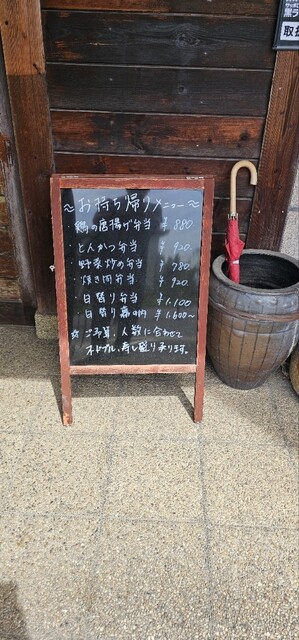 ～お持ち帰りメニュー～
・鶏の唐揚げ弁当 ¥880
・とんかつ弁当 ¥920.
・野菜炒め弁当 ¥780.
・焼き肉弁当 ¥920.
・日替り弁当 ¥1,100
・日替り幕の内 ¥1,600～
☆ご予算、人数に合わせて
オードブル、寿し盛り承ります。
取扱